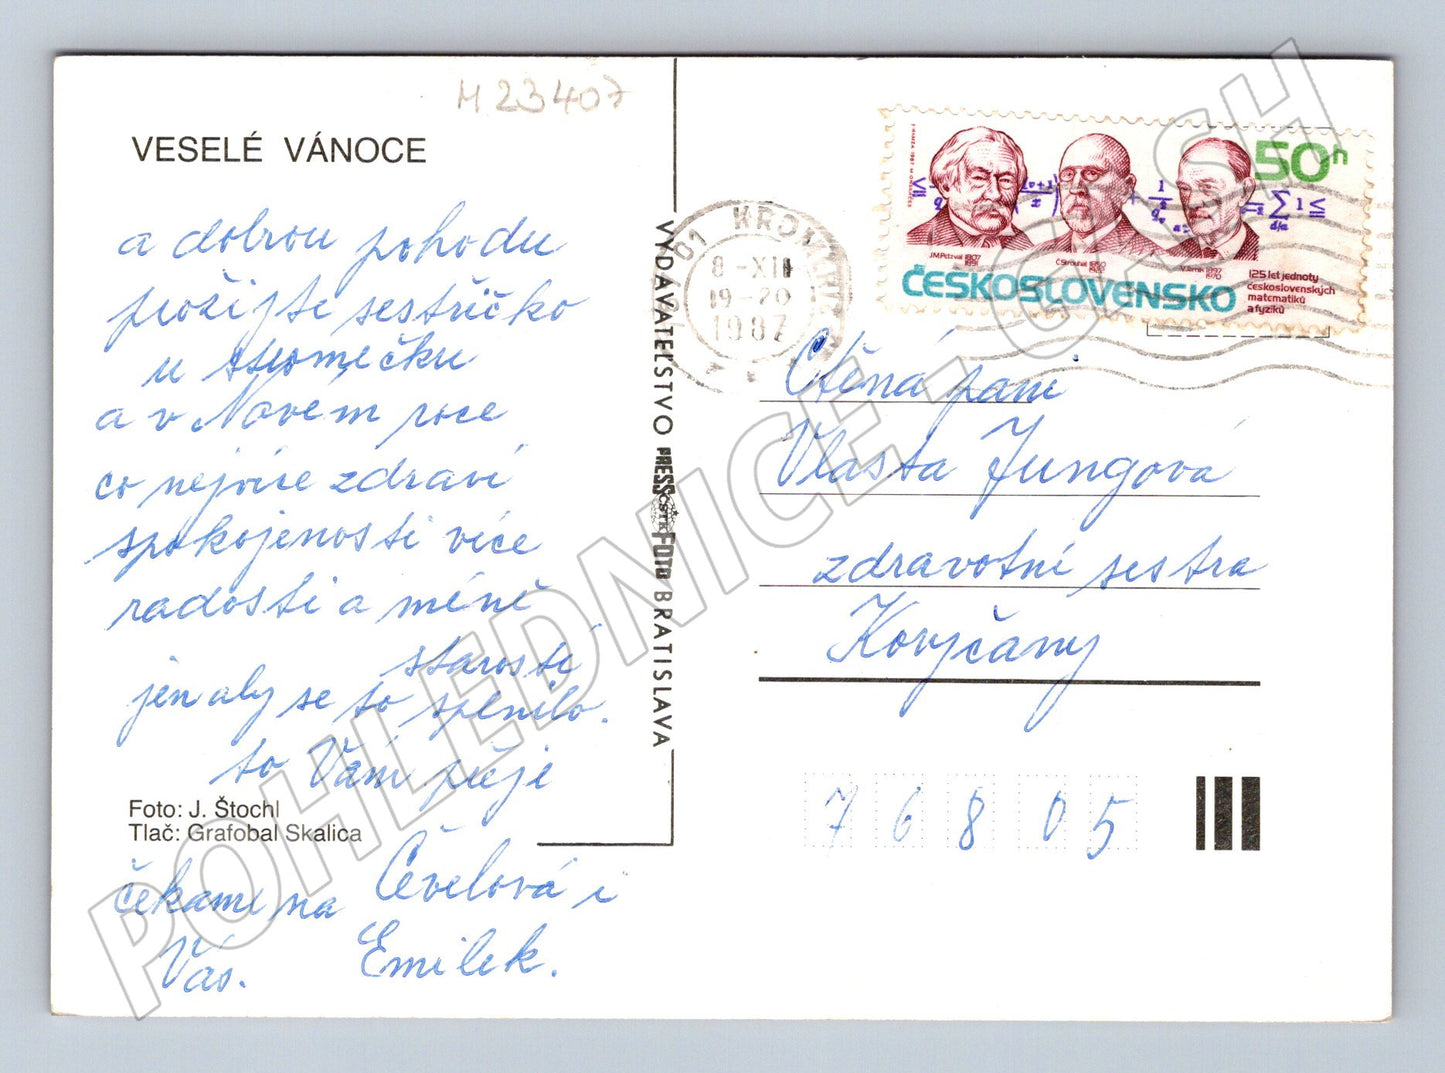 M 23407
VESELÉ VÁNOCE
a dobrou pohodu
prožijte sestřičko
u stromečku
a v Novém roce
co nejvíce zdraví
spokojenosti více
radosti a méně
starostí
jen aby se to splnilo.
to Vám přeje
Foto: J. Štochl
Tlač: Grafobal Skalica
Čévelová i
čekáme na
Vás.
Emilek.
VYDAVATEĽSTVO PRESSFOTO BRATISLAVA
ČSTK
01 KROM
8.-XII
19-20
1987
50h
J.M.Petzval 1807 1891
Č.Strouhal 1850
V.Jarník 1897 1970
ČESKOSLOVENSKO
125 let jednoty
československých
matematiků
a fyziků
Ctěná paní
Vlasta Jungová
zdravotní sestra
Koryčany
76805
POHLEDNICE - CASH